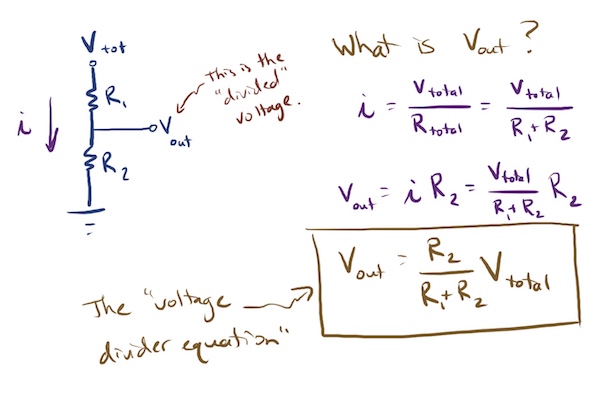 V_tot
R_1
i
V_out
R_2
This is the
"divided"
voltage.
What is V_out?
i = V_total / R_total = V_total / (R_1 + R_2)
V_out = i R_2 = V_total / (R_1 + R_2) R_2
V_out = R_2 / (R_1 + R_2) V_total
The "voltage
divider equation"